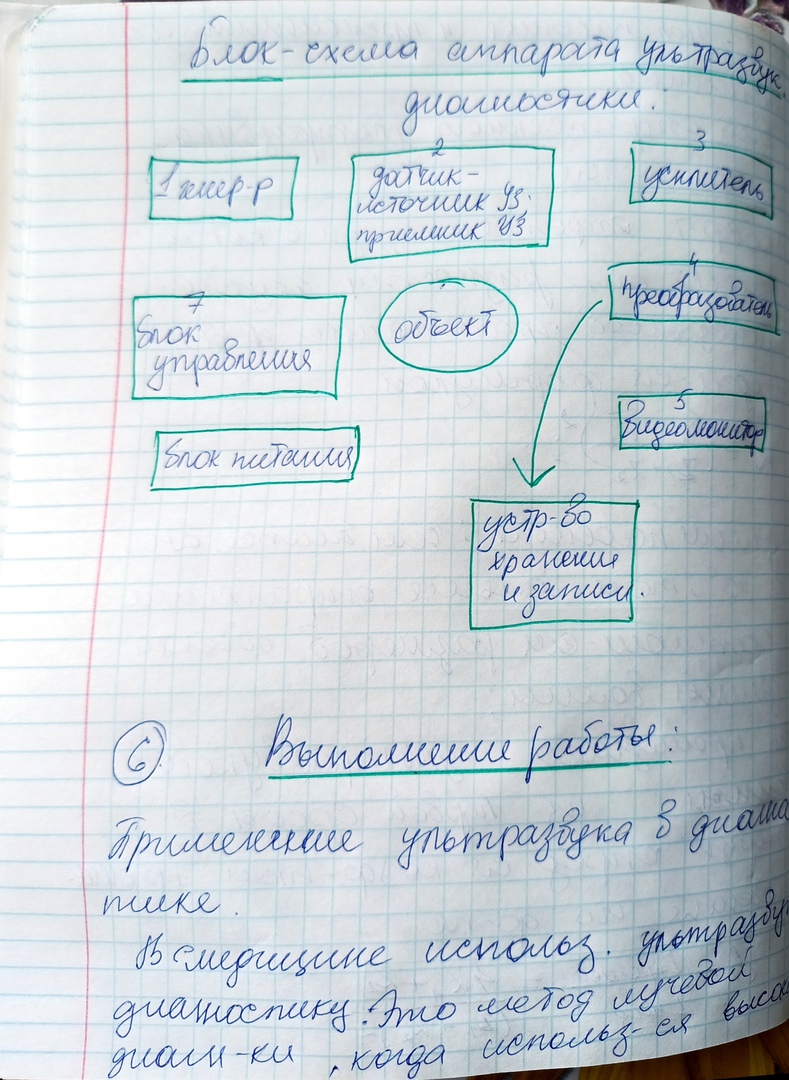 Блок-схема аппарата ультразвук.
диагностики:
1 генер-р
2
датчик-
источник УЗ.
приемник УЗ
3
усилитель
4
преобразователь
7
блок
управления
объект
5
Видеомонитор
блок питания
устр-во
хранения
и записи.
6. Выполнение работы:
Применение ультразвука в диагнос
тике.
В медицине использ. ультразву
диагностику. Это метод лучевой
диагн-ки, когда использ-ся высок